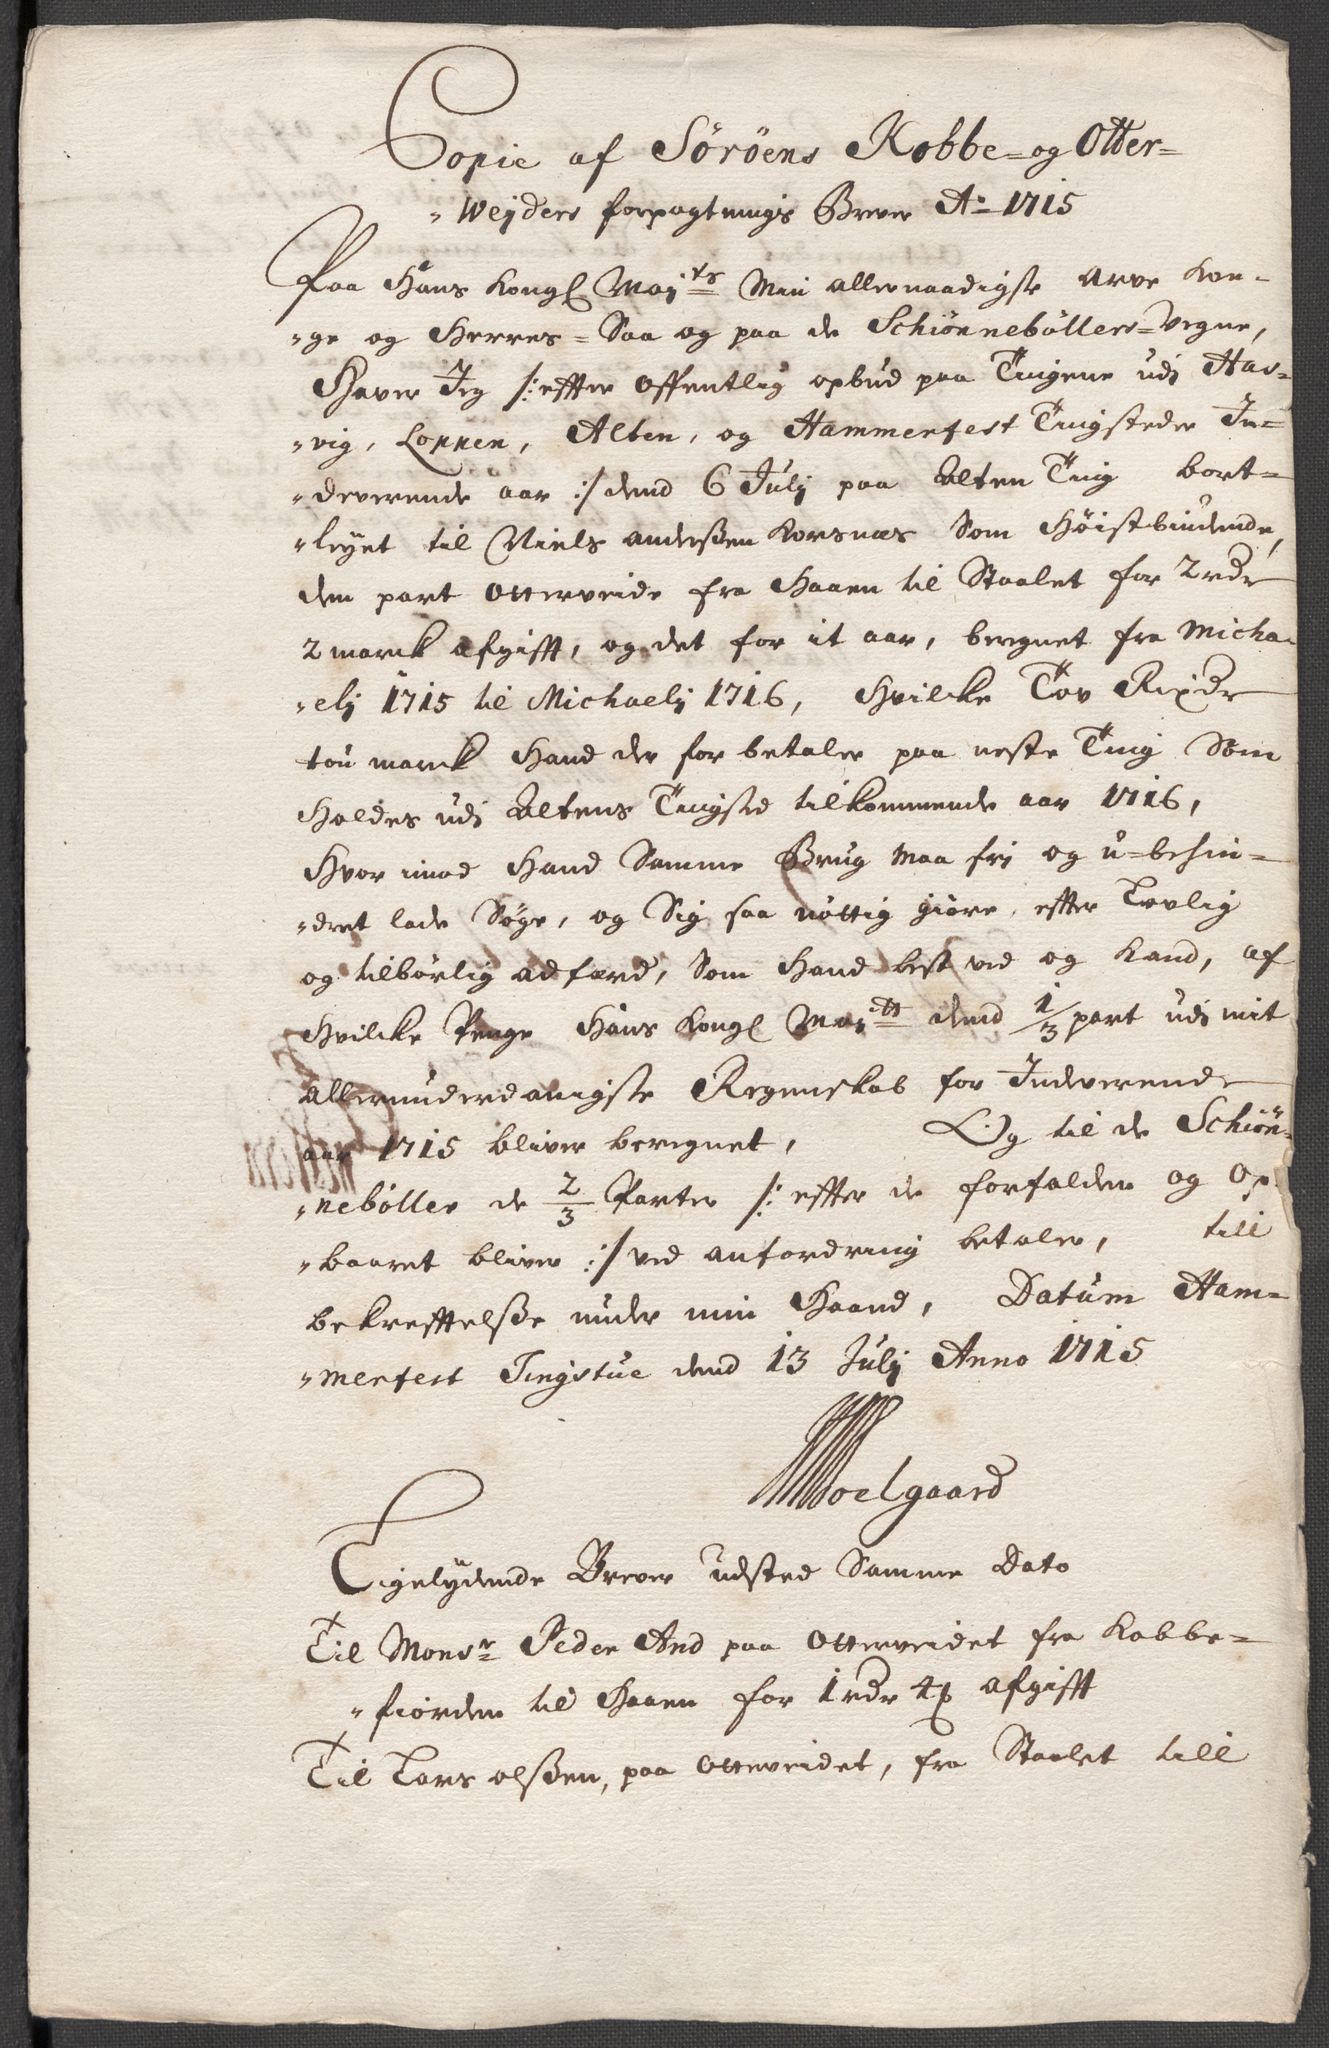 Copie af Söröens Kobbe- og Otter-
Weyders forpagtnings Brever Ao 1715
Paa Hans Kongl Mayts Min allernaadigste Arve Kon-
ge og Herres- Saa og paa de Schiönnebôllers- Vegne,
Haver Jeg /: effter offentlig opbud paa Tingene udi Has-
vig, Loppen, Alten, og Hammerfest Tingsteder In-
deverende aar :/ dend 6 Julij paa Alten Ting bort-
leyet til Niels anderßen Korsnæs Som Höistbiudende,
den part Otterveide fra Haaen til Staalet for 2 rdr
2 marck afgifft, og det for it aar, beregnet fra Micha-
elij 1715 til Michaelij 1716, Hvilcke Tov Rixdr
tou marck Hand der for betaler paa neste Ting Som
Holdes udi Altens Tingsted tilkommende aar 1716,
Hvor imod Hand Samme Brug maa frj og u-behin-
dret lade Söge, og Sig saa nöttig giöre, effter Lovlig
og tilbörlig adfærd, Som Hand best ved og kand, af
Hvilcke Penge Hans Kongl Maytt dend 1/3 part udi mit
allerunderdanigste Regenskab for Indeverende
aar 1715 bliver beregnet, Og til de Schiön-
nebôller de 2/3 Parter /: effter de forfalden og Op-
baaret bliver :/ ved anfordring betaler, till
bekrefftelße under min Haand, Datum Ham-
merfest Tingstue dend 13 Julij Anno 1715
Woelgaard
Ligelydende Brever udsted Samme Dato
Til Monsr Peder And paa Otterveidet fra Kobbe-
fiorden til Haaen for 1 rdr 4 ß afgifft
Til Lars olßen, paa Otterveidet, fra Staalet till